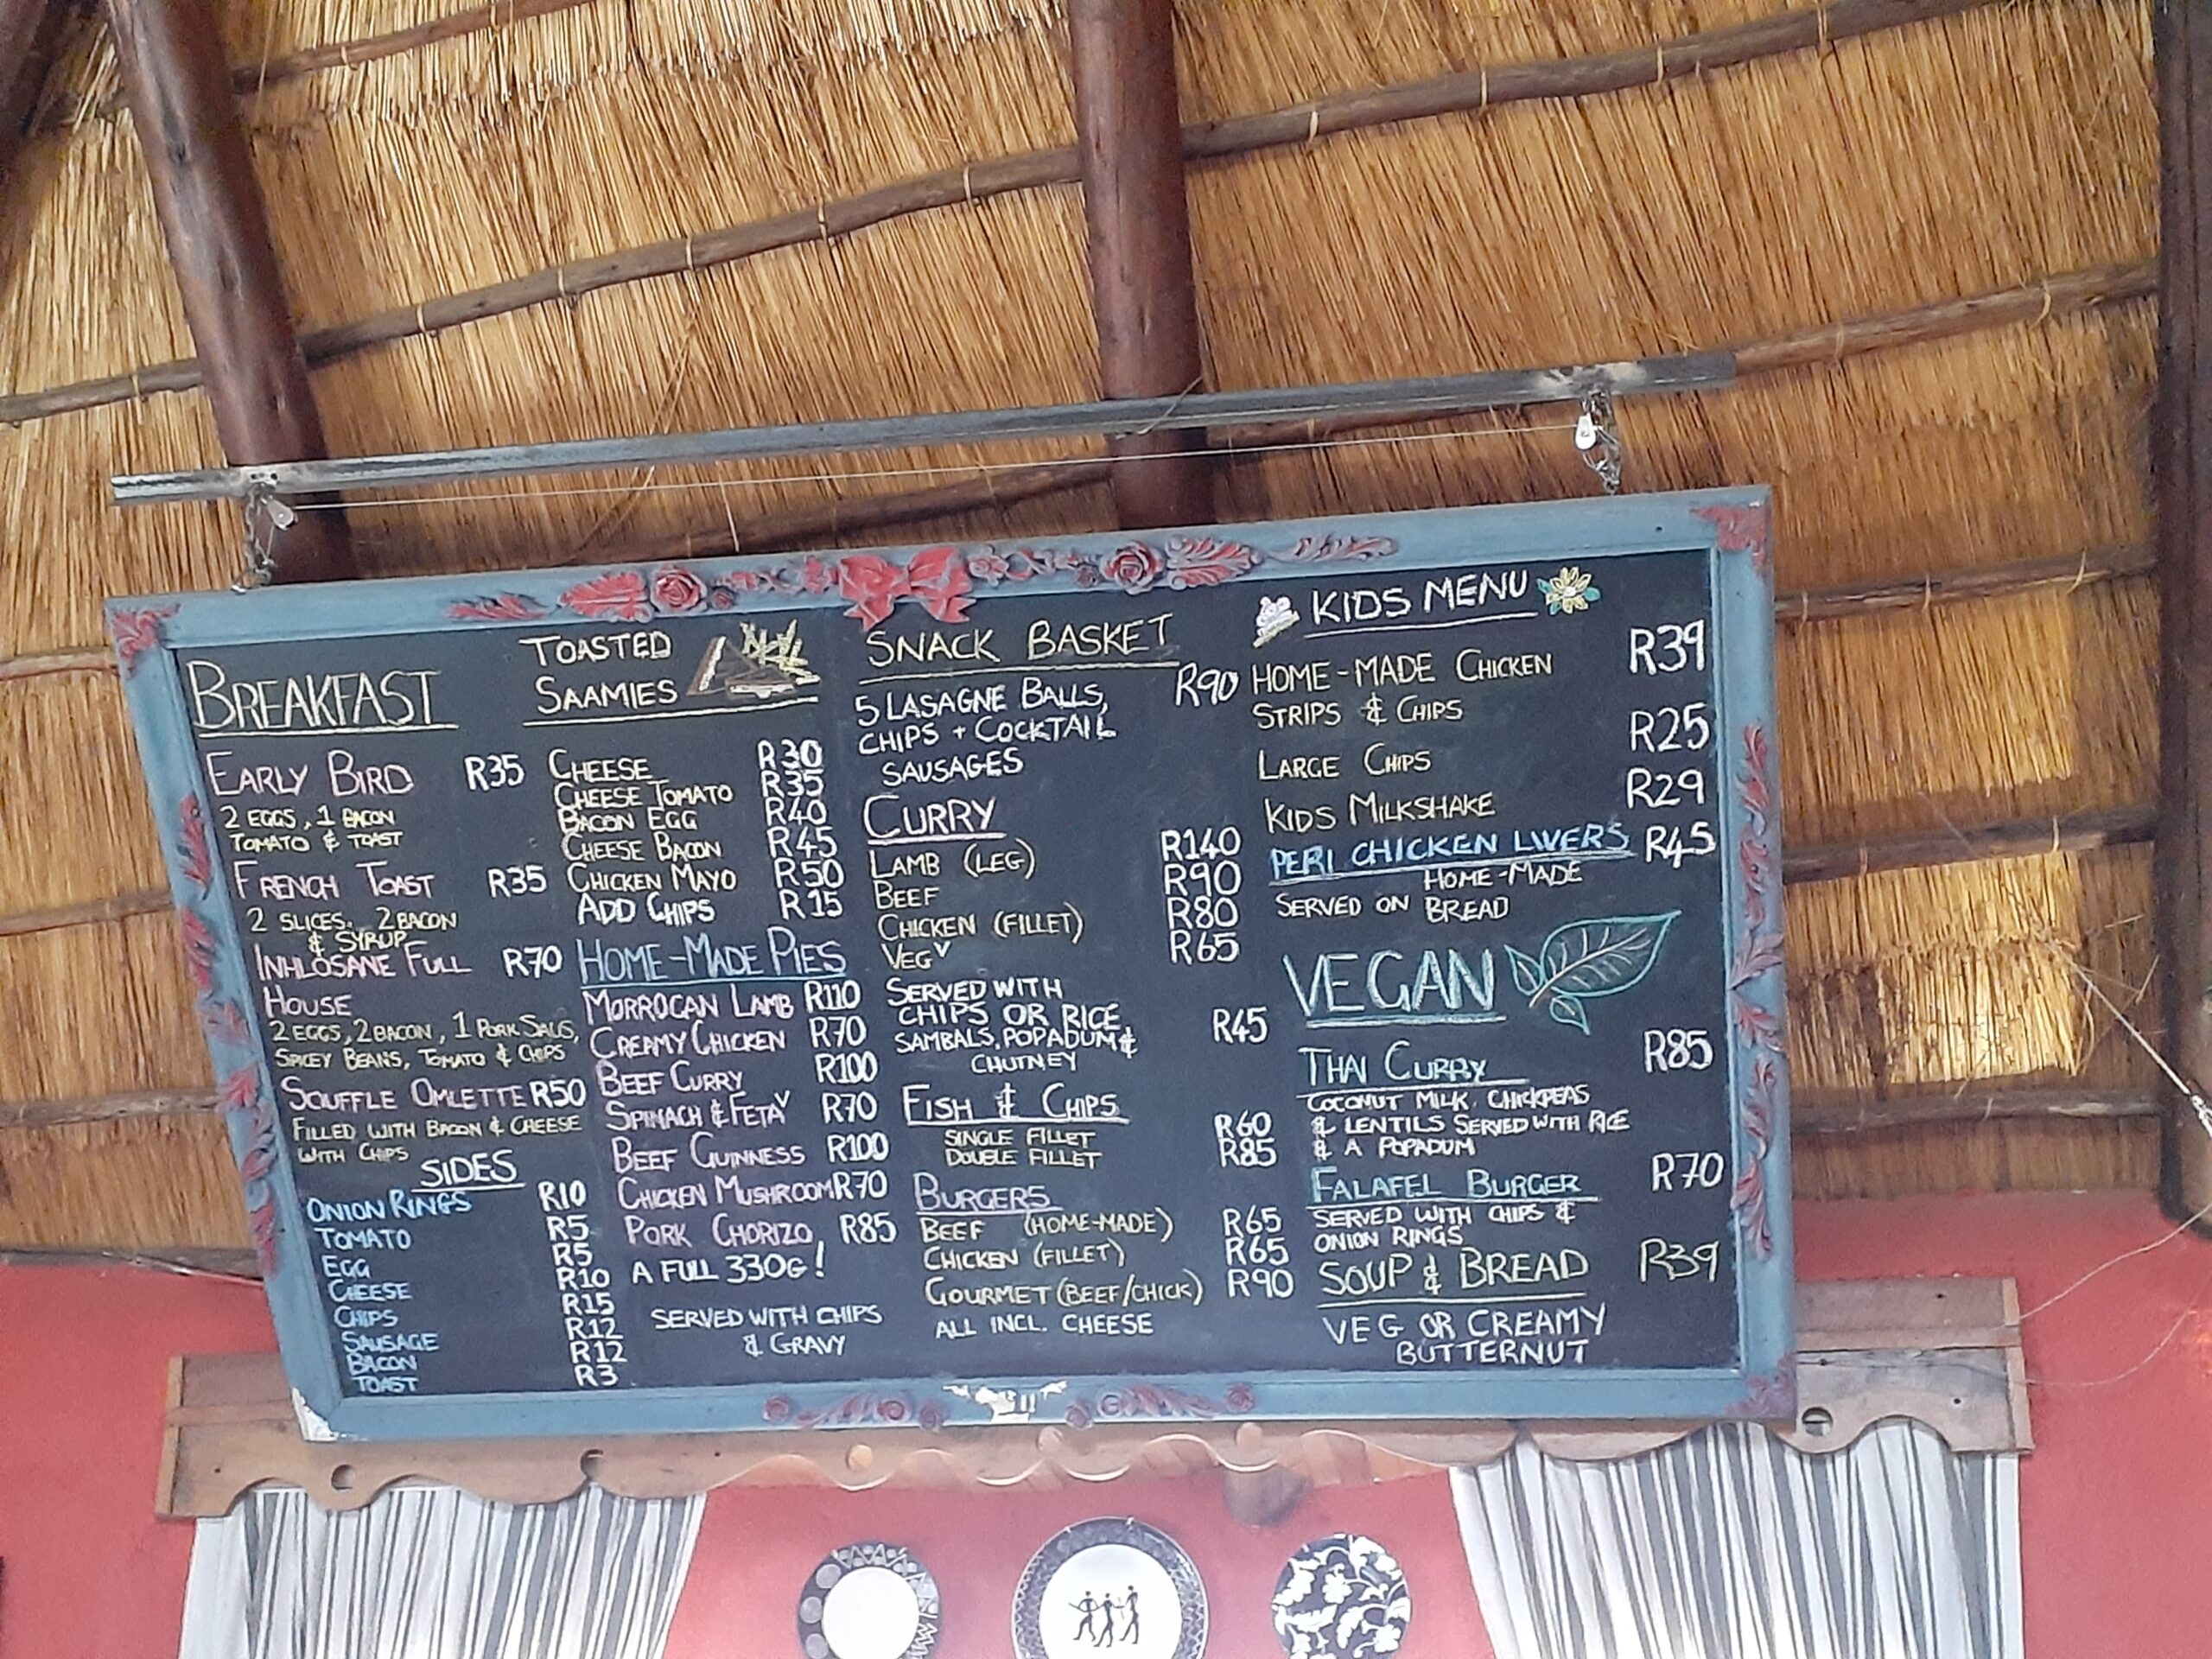 BREAKFAST
EARLY BIRD R35
2 EGGS, 1 BACON
TOMATO & TOAST
FRENCH TOAST R35
2 SLICES, 2 BACON
& SYRUP
INHLOSANE FULL R70
HOUSE
2 EGGS, 2 BACON, 1 PORK SAUS,
SPICEY BEANS, TOMATO & CHIPS
SOUFFLE OMLETTE R50
FILLED WITH BACON & CHEESE
WITH CHIPS
SIDES
ONION RINGS R10
TOMATO R5
EGG R5
CHEESE R10
CHIPS R15
SAUSAGE R12
BACON R12
TOAST R3
TOASTED
SAAMIES
CHEESE R30
CHEESE TOMATO R35
BACON EGG R40
CHEESE BACON R45
CHICKEN MAYO R50
ADD CHIPS R15
HOME-MADE PIES
MORROCAN LAMB R110
CREAMY CHICKEN R70
BEEF CURRY R100
SPINACH & FETA V R70
BEEF GUINNESS R100
CHICKEN MUSHROOM R70
PORK CHORIZO R85
A FULL 330G!
SERVED WITH CHIPS
& GRAVY
SNACK BASKET
5 LASAGNE BALLS, R90
CHIPS + COCKTAIL
SAUSAGES
CURRY
LAMB (LEG) R140
BEEF R90
CHICKEN (FILLET) R80
VEG V R65
SERVED WITH
CHIPS OR RICE R45
SAMBALS, POPADUM &
CHUTNEY
FISH & CHIPS
SINGLE FILLET R60
DOUBLE FILLET R85
BURGERS
BEEF (HOME-MADE) R65
CHICKEN (FILLET) R65
GOURMET (BEEF/CHICK) R90
ALL INCL. CHEESE
KIDS MENU
HOME-MADE CHICKEN R39
STRIPS & CHIPS
LARGE CHIPS R25
KIDS MILKSHAKE R29
PERI CHICKEN LIVERS R45
HOME-MADE
SERVED ON BREAD
VEGAN
THAI CURRY R85
COCONUT MILK, CHICKPEAS
& LENTILS SERVED WITH RICE
& A POPADUM
FALAFEL BURGER R70
SERVED WITH CHIPS &
ONION RINGS
SOUP & BREAD R39
VEG OR CREAMY
BUTTERNUT